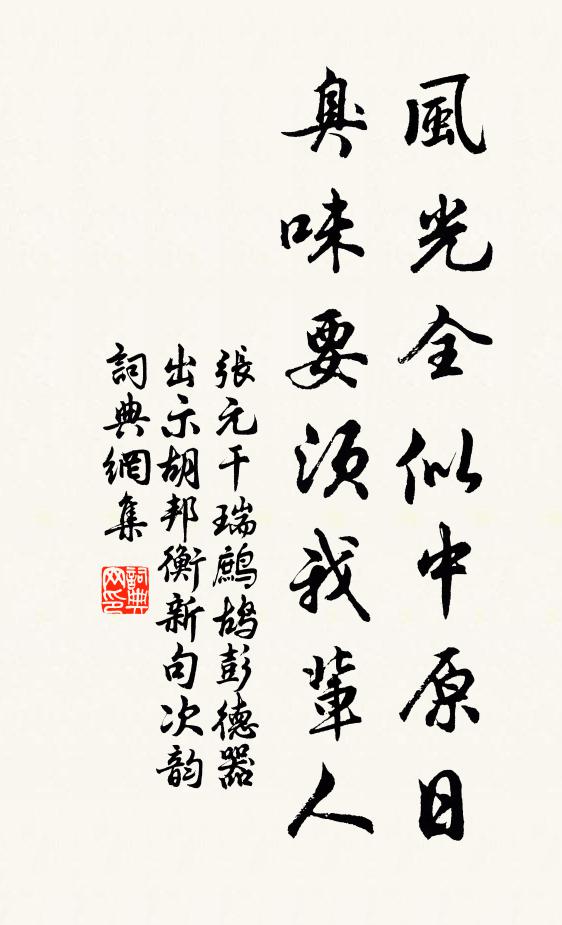 風光全似中原日
臭味要須我輩人
張元干瑞鷓鴣彭德器
出示胡邦衡新句次韵
詞典網集
詞典網印